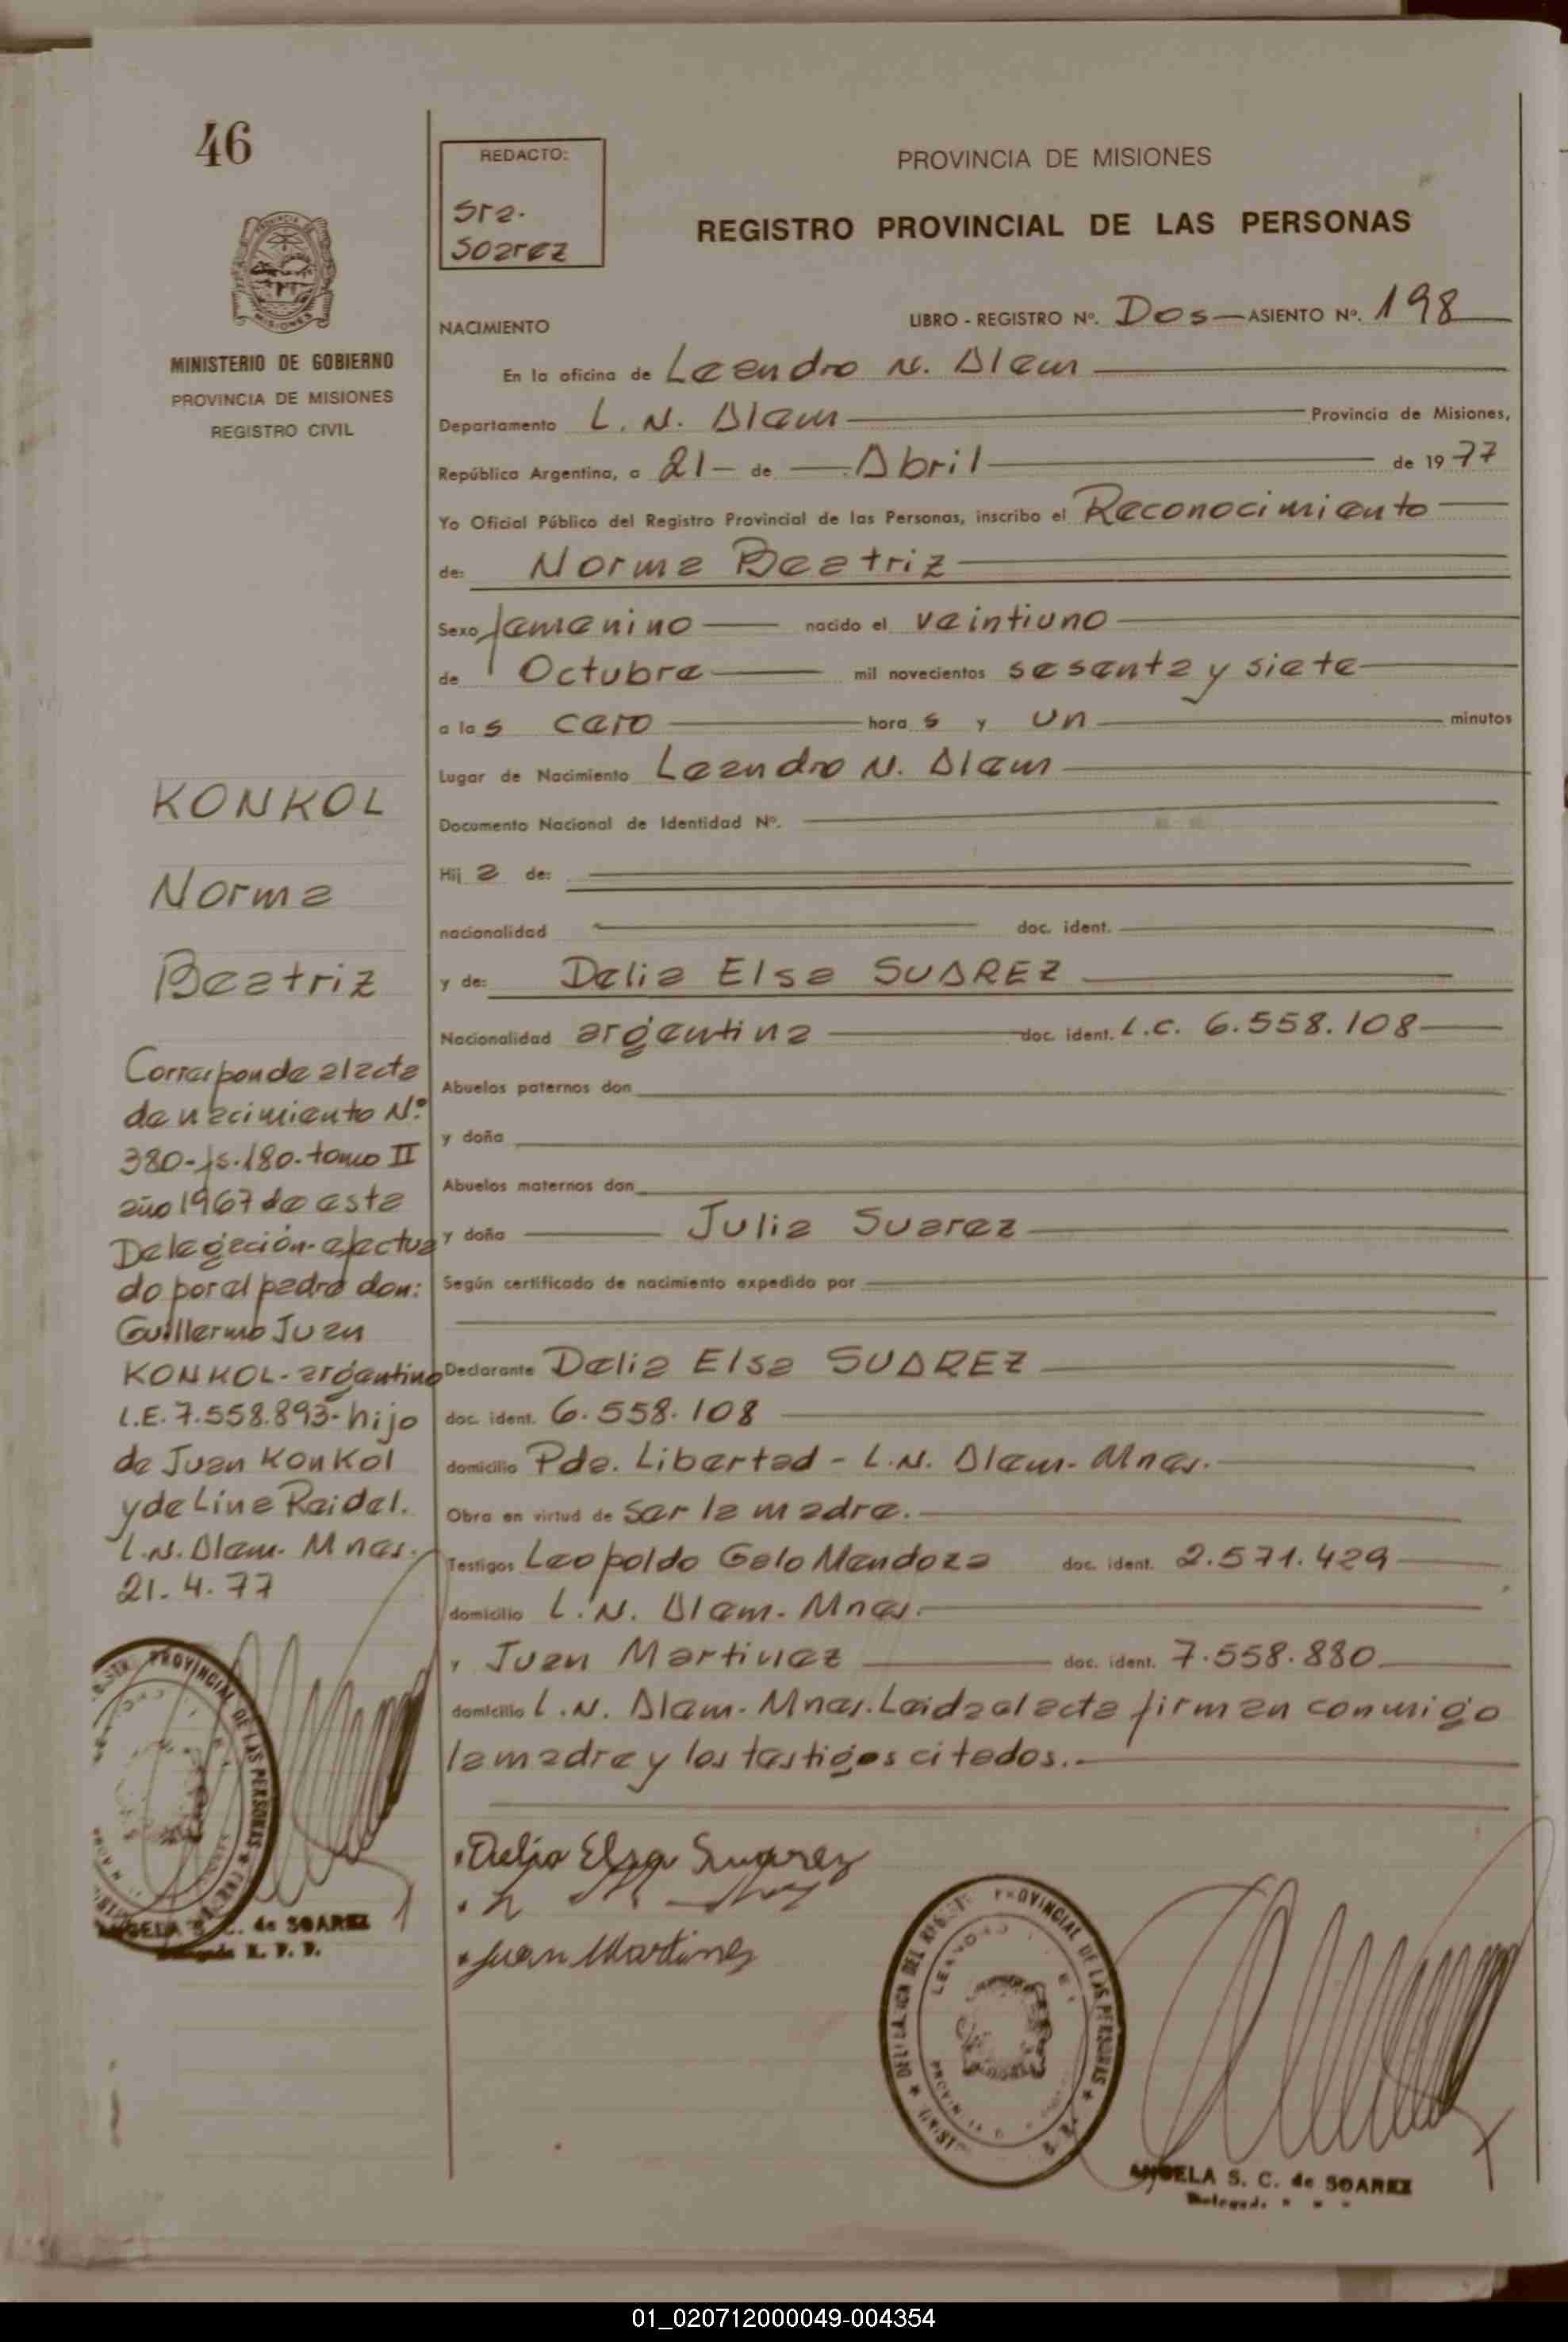 46
MINISTERIO DE GOBIERNO
PROVINCIA DE MISIONES
REGISTRO CIVIL
KONKOL
Norma
Beatriz
Corresponde al acta
de nacimiento Nº
380-fs.180-tomo II
año 1967 de esta
Delegación-efectua
do por el padre don:
Guillermo Juan
KONKOL-argentino
L.E. 7.558.893-hijo
de Juan Konkol
y de Lina Reidel.
L.N. Alem. Mnes.
21.4.77
PROVINCIAL DE LAS PERSONAS
C. de SOAREZ
REDACTO:
Sra.
Soarez
PROVINCIA DE MISIONES
REGISTRO PROVINCIAL DE LAS PERSONAS
NACIMIENTO
LIBRO - REGISTRO Nº. Dos — ASIENTO Nº. 198
En la oficina de Leandro N. Alem
Departamento L. N. Alem Provincia de Misiones,
República Argentina, a 21 de Abril de 1977
Yo Oficial Público del Registro Provincial de las Personas, inscribo el Reconocimiento
de: Norma Beatriz
Sexo femenino nacido el veintiuno
de Octubre mil novecientos sesenta y siete
a las cero horas y un minutos
Lugar de Nacimiento Leandro N. Alem
Documento Nacional de Identidad Nº.
Hija de:
nacionalidad doc. ident.
y de: Delia Elsa SUAREZ
Nacionalidad argentina doc. ident. L.C. 6.558.108
Abuelos paternos don
y doña
Abuelos maternos don
y doña Julia Suarez
Según certificado de nacimiento expedido por
Declarante Delia Elsa SUAREZ
doc. ident. 6.558.108
domicilio Pda. Libertad - L.N. Alem. Mnes.
Obra en virtud de ser la madre.
Testigos Leopoldo Galo Mendoza doc. ident. 2.571.429
domicilio L.N. Alem. Mnes.
y Juan Martinez doc. ident. 7.558.880
domicilio L.N. Alem. Mnes. Leida el acta firman conmigo
la madre y los testigos citados..
Delia Elsa Suarez
Juan Martinez
PROVINCIAL DE LAS PERSONAS
ANGELA S. C. de SOAREZ
01_020712000049-004354